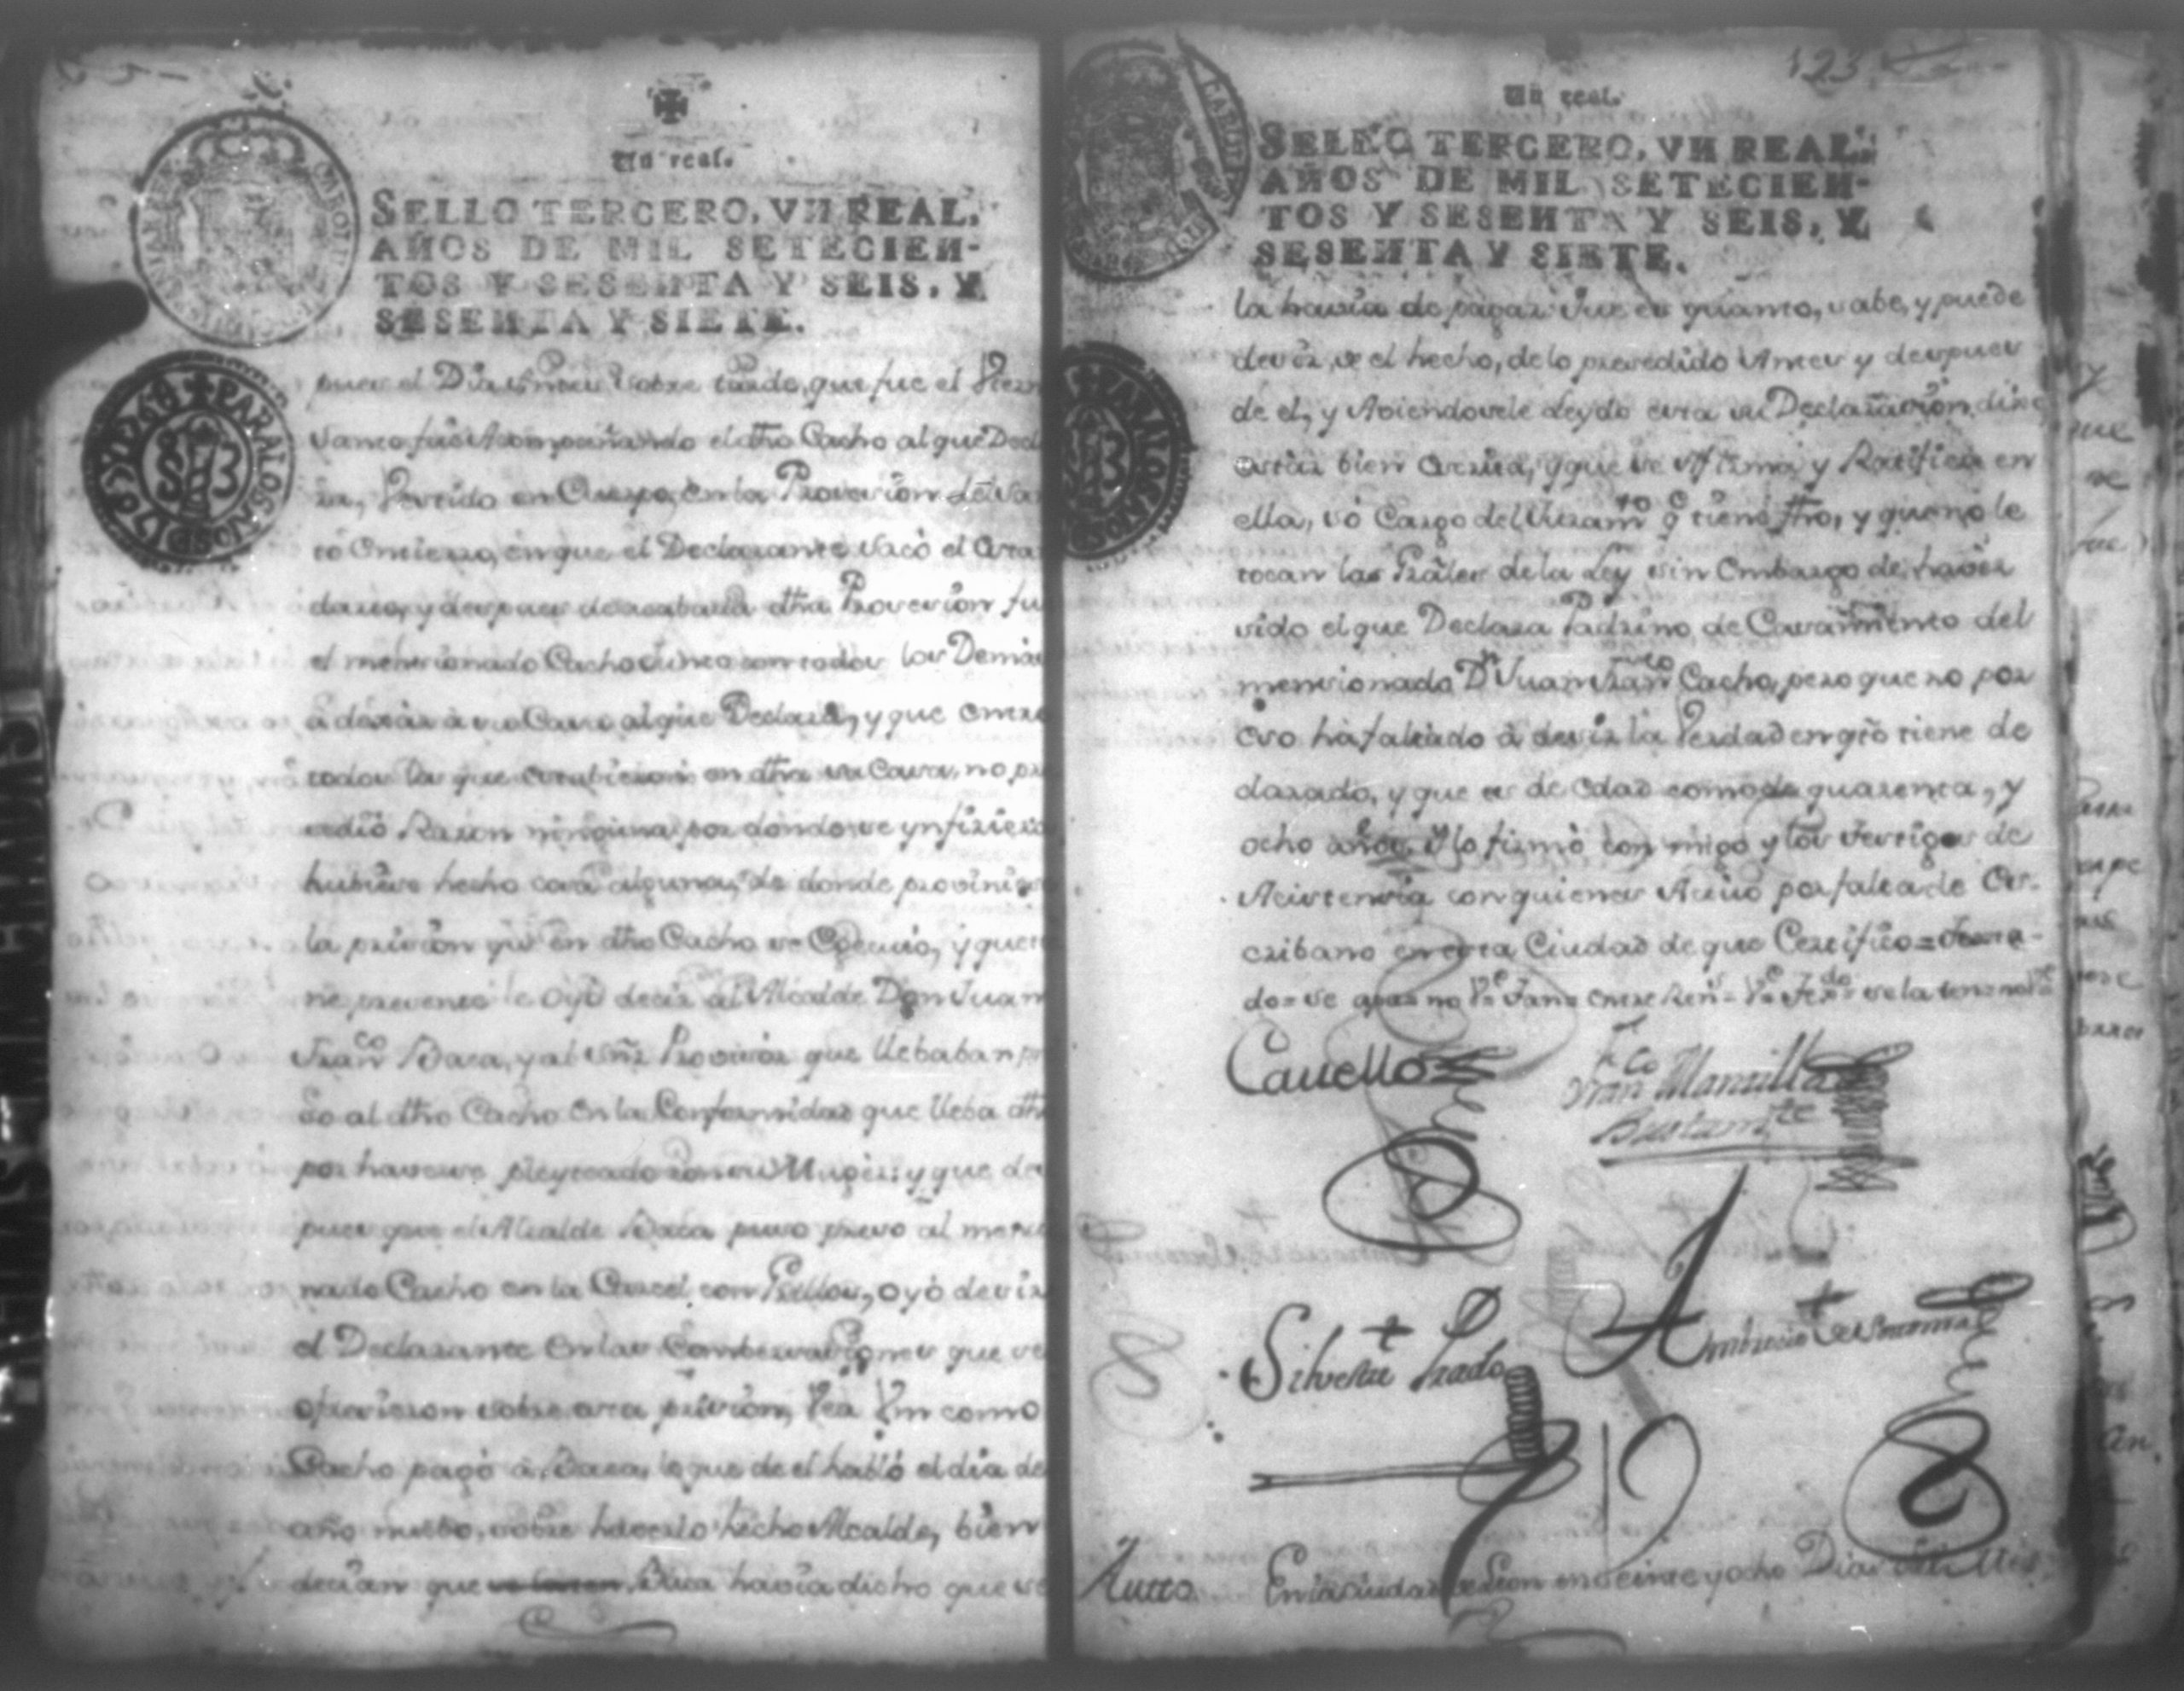 Un real.
SELLO TERCERO, VN REAL,
AÑOS DE MIL SETECIEN-
TOS Y SESENTA Y SEIS, Y
SESENTA Y SIETE.
PARA LOS AÑOS DI 767 Y D 768
pues el Dia sobre tarde, que fue el Viern
Santo fue Acompañando el dho Cacho al que Decl
ra, Vestido en Cuerpo, en la Provesion del San
to Entierro, en que el Declarante Sacò el Esta
darte, y despues de acabada dha Provesion fu
el mensionado Cacho Junto con todos los Demas
a dexar à su Casa al que Declara, y que entre
todos los que estubieron en dha su Casa, no pre
cediò Razon ninguna por donde se ynfiriera
hubiese hecho cosa alguna, de donde proviniese
la prision que en dho Cacho se Executò, y que
ne presente le oyò decir al Alcalde Don Juan
Franco Baca, y al Señr Provisor que llebaban pre
so al dho Cacho en la Conformidad que lleba dho
por haverse pleyteado con su Muger: y que des
pues que el Alcalde Baca puso preso al mensio
nado Cacho en la Carcel con Grillos, oyò decir
el Declarante en las Combersasiones que se
ofrecieron sobre esta prision, Vea Vm como
Cacho pagò à Baca, lo que de el hablò el dia de
año nuebo, sobre haverlo hecho Alcalde, bien
decian que Baca havia dicho que se
123
Un real.
SELLO TERCERO, VN REAL,
AÑOS DE MIL SETECIEN-
TOS Y SESENTA Y SEIS, Y
SESENTA Y SIETE.
la havia de pagar: Que es quanto, sabe, y puede
desir, se el hecho, de lo prosedido Antes y despues
de el, y Aviendosele Leydo esta su Declarasion, dixo
estar bien escrita, y que se Afirma y Ratifica en
ella, só Cargo del Juramto q. tiene fho, y que no le
tocan las Grãles de la Ley sin embargo de haver
sido el que Declara Padrino de Casamiento del
mensionado Dn Juan Franco Cacho, pero que no por
eso ha faltado à desir la Verdad en qto tiene de
clarado, y que es de edad como de quarenta, y
ocho años. Y lo firmò con migo y los testigos de
Asistensia con quienes Actuo por falta de Es-
cribano en esta Ciudad de que Certifico = Testa-
do = se que = no Ve
Cauello
Franco Mansilla
Bustamte
Silvestre Prado
Ambrocio de
Autto
En la ciudad de Leon en veinte y ocho Dias del Mes